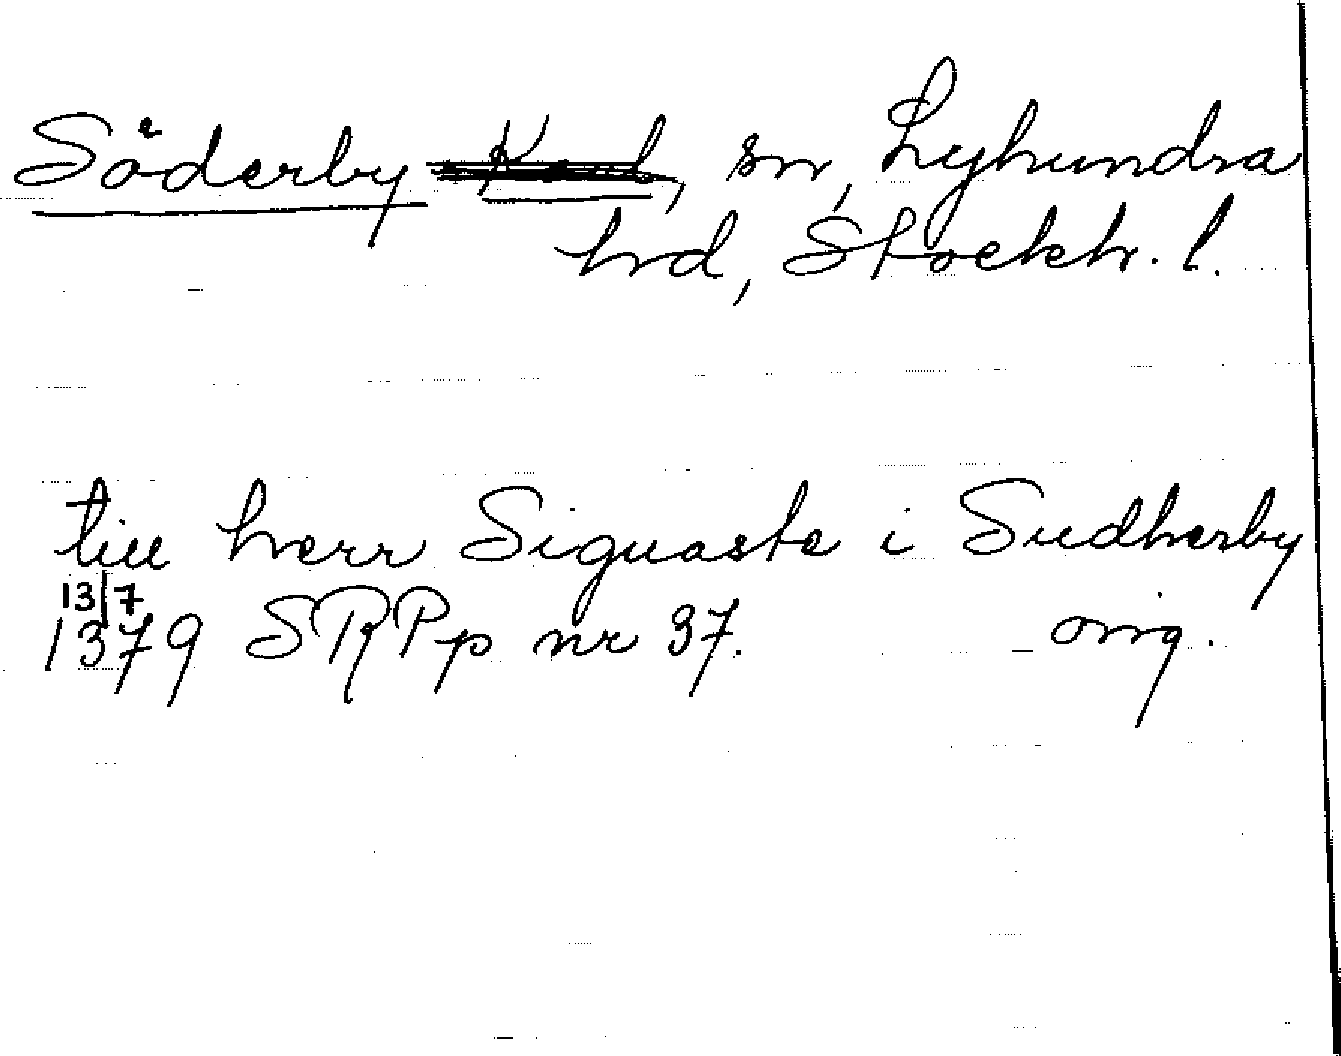 Söderby , sn, Lyhundra
hrd, Stockh. l.
till herr Siguaste i Sudherby
13/7
1379 SRPp nr 37. orig.